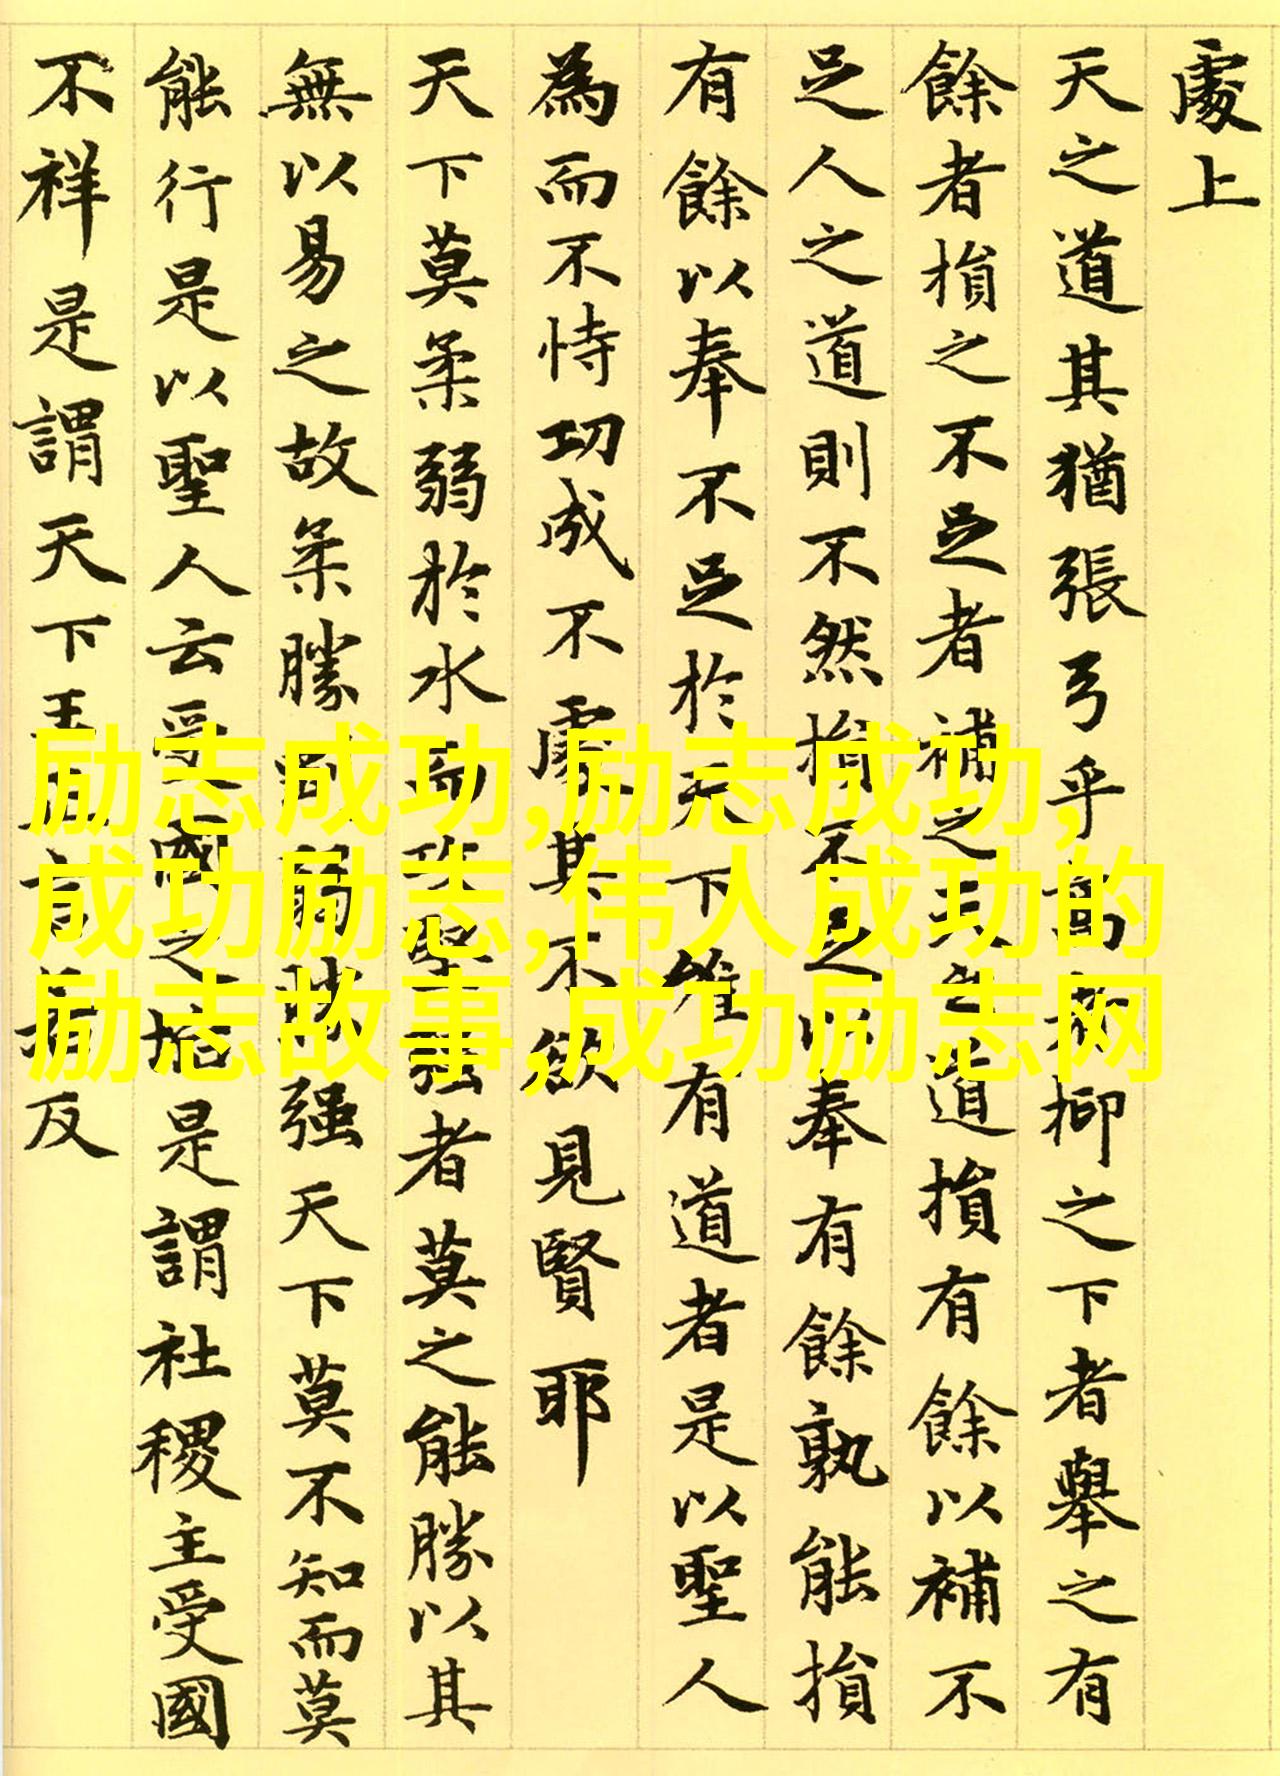 處上
天之道其猶張弓乎高抑之下者舉之有
餘者損之不足者補之天之道損有餘以補不
足人之道則不然損不足以奉有餘孰能損
有餘以奉不足於天下唯有道者是以聖人
為而不恃功成不處其不欲見賢耶
天下莫柔弱於水而攻堅强者莫之能勝以其
無以易之故柔勝剛弱勝强天下莫不知而莫
能行是以聖人云受國之垢是謂社稷主受國
不祥是謂天下王正言若反
励志成功,励志成功,
成功励志,伟人成功的
励志故事,成功励志网